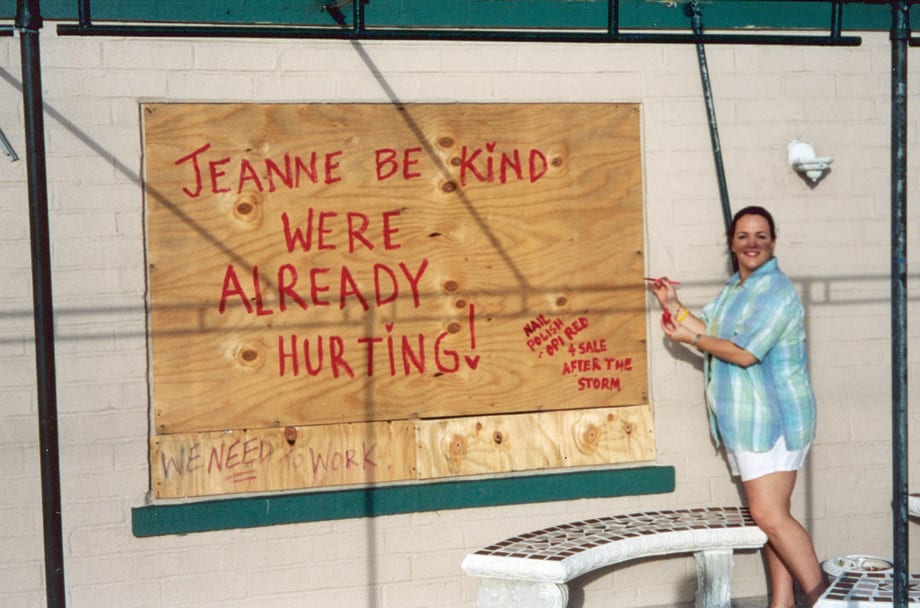 JEANNE BE KIND
WERE
ALREADY
HURTING!
NAIL
POLISH
- OPI RED
4 SALE
AFTER THE
STORM
WE NEED to WORK.